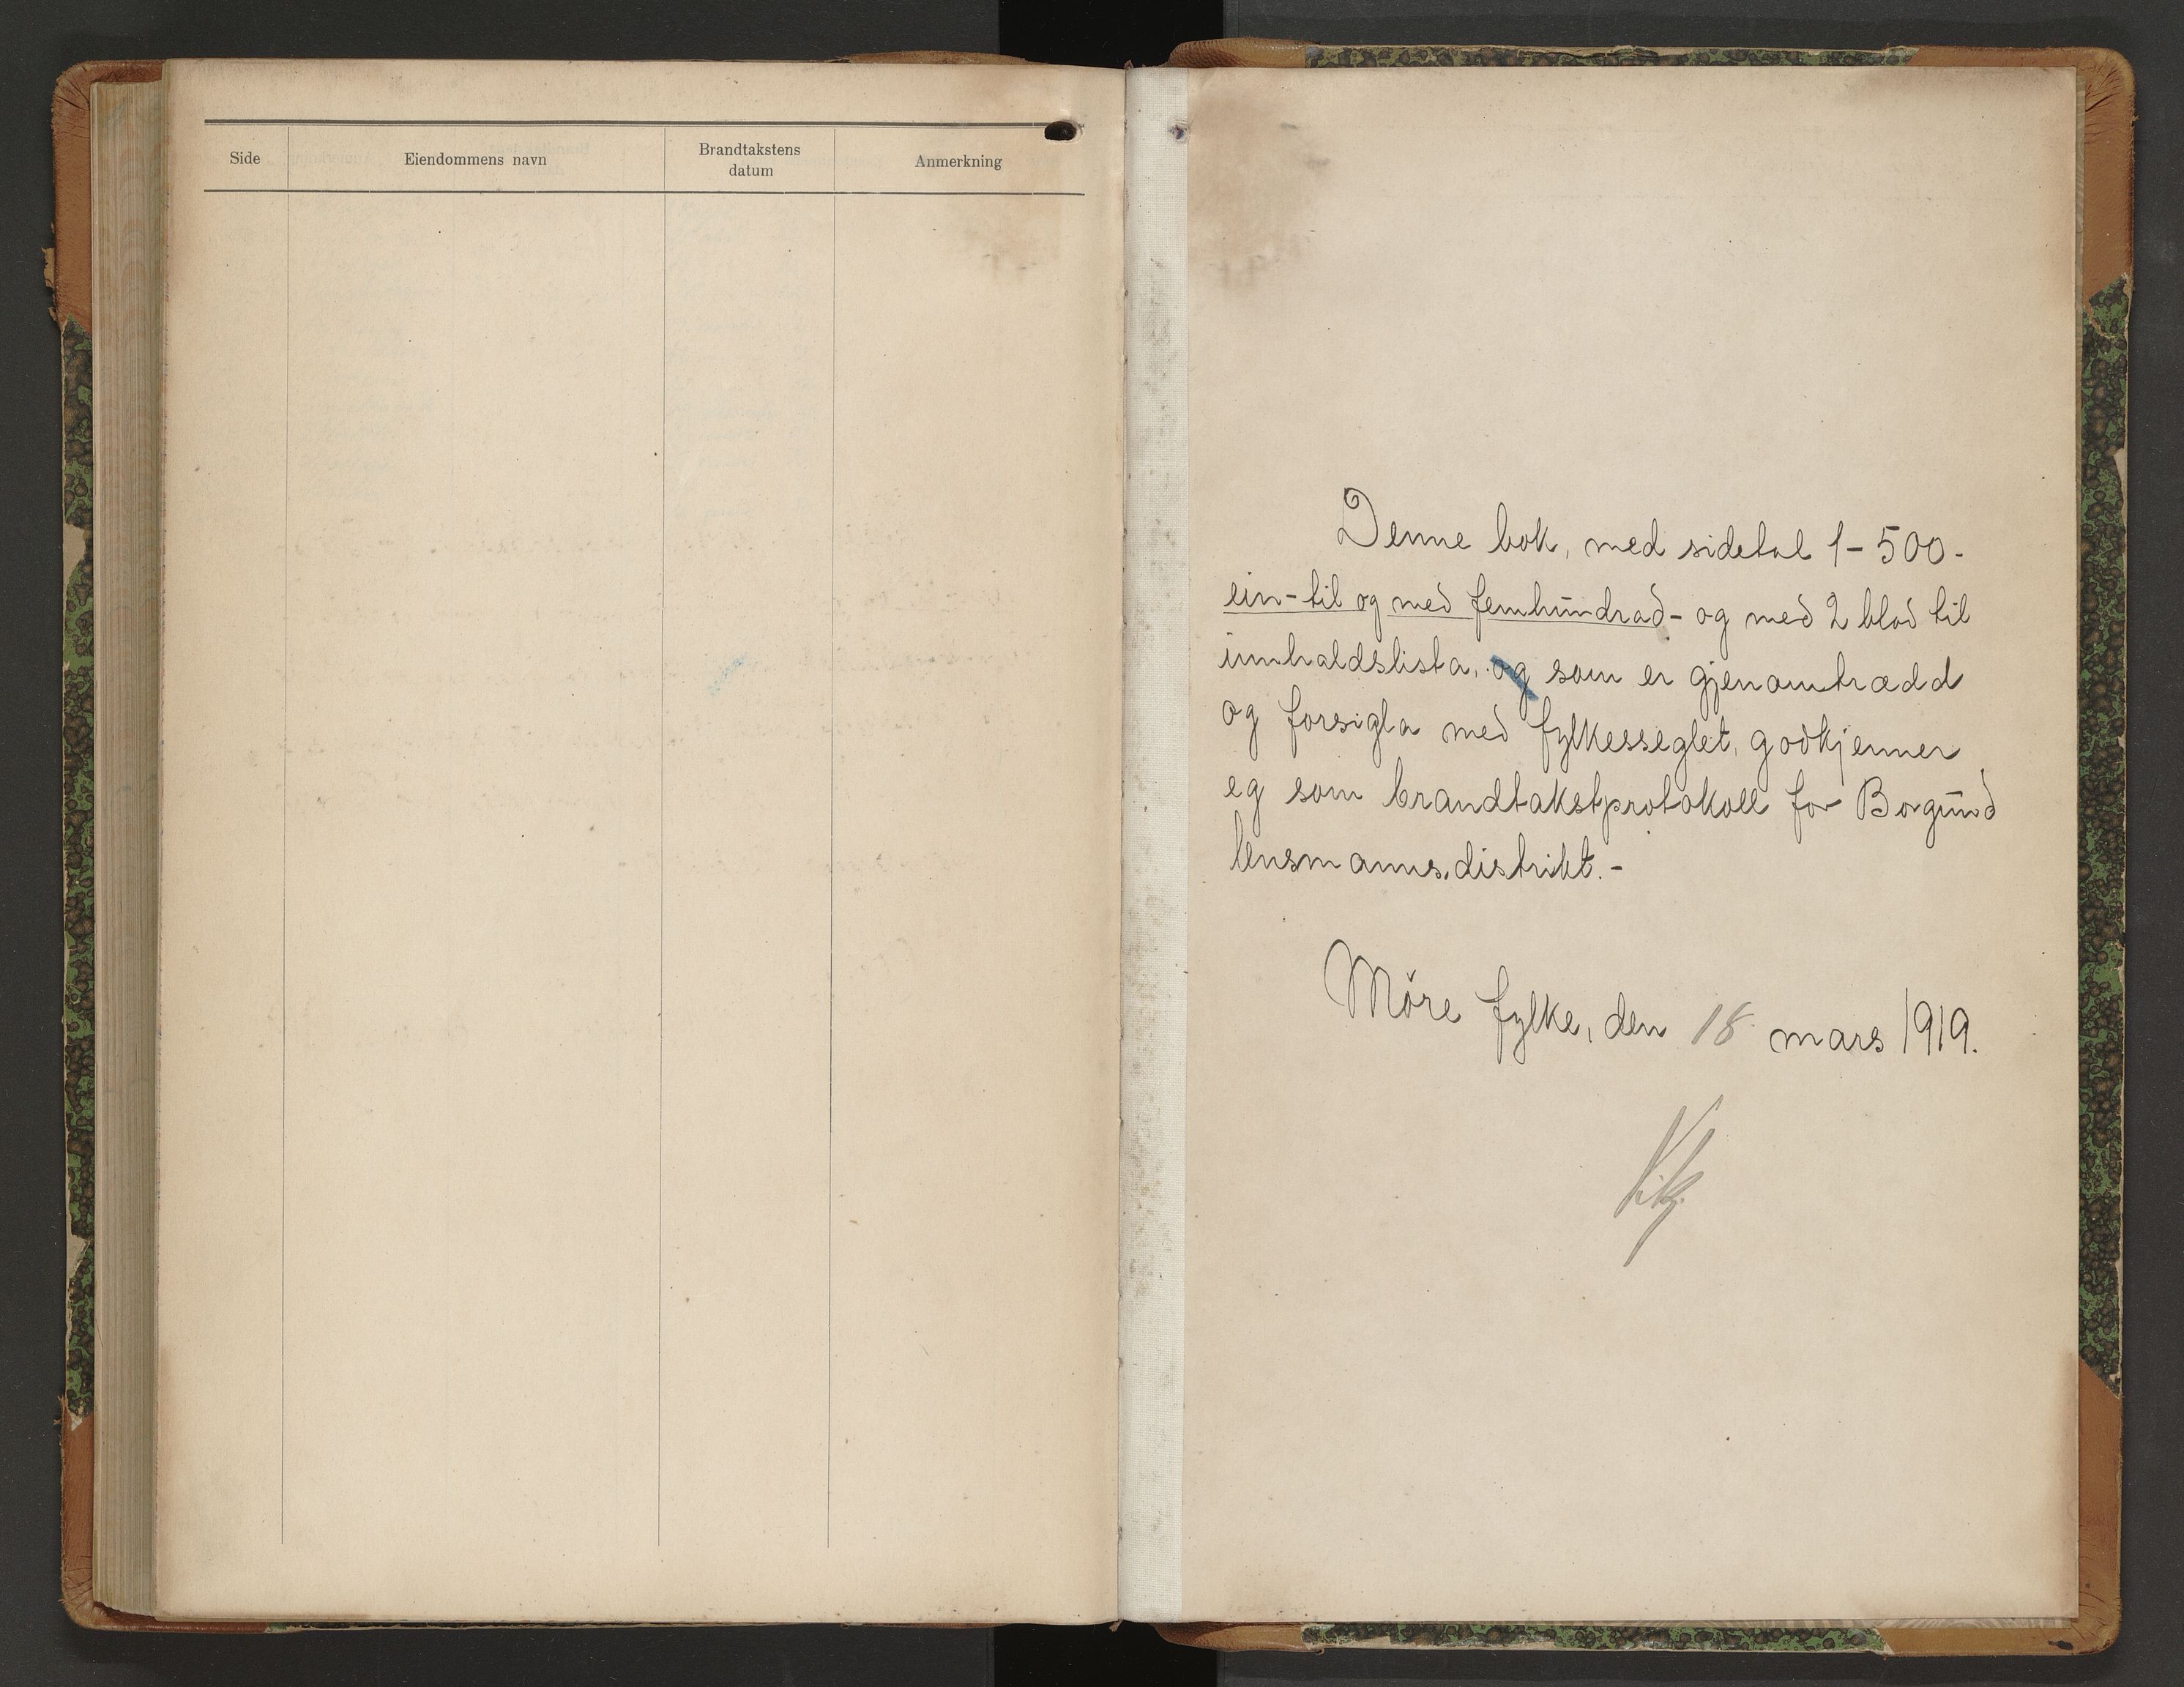 Side Eiendommens navn Brandtakstens datum Anmerkning
Denne bok, med sidetal 1-500-
ein-til og med femhundrad- og med 2 blad til
innhaldslista, og som er gjenomtrædd
og forsigla med fylkesseglet, godkjenner
eg som brandtakstprotokoll for Borgund
lensmannsdistrikt.-
Möre fylke, den 18 mars 1919.